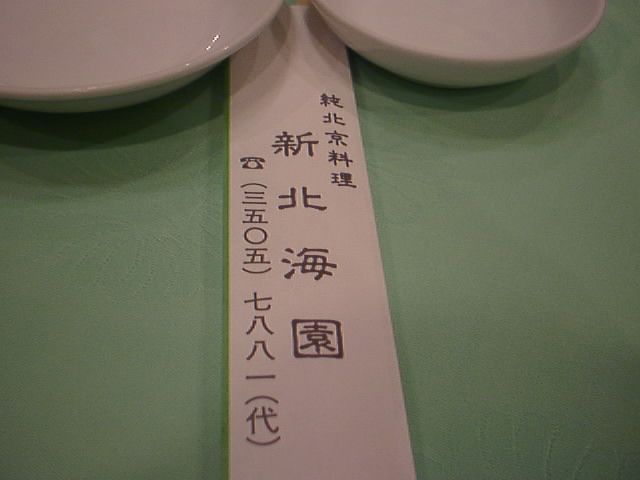 純北京料理
新北海園
☎(三五〇五)七八八一(代)